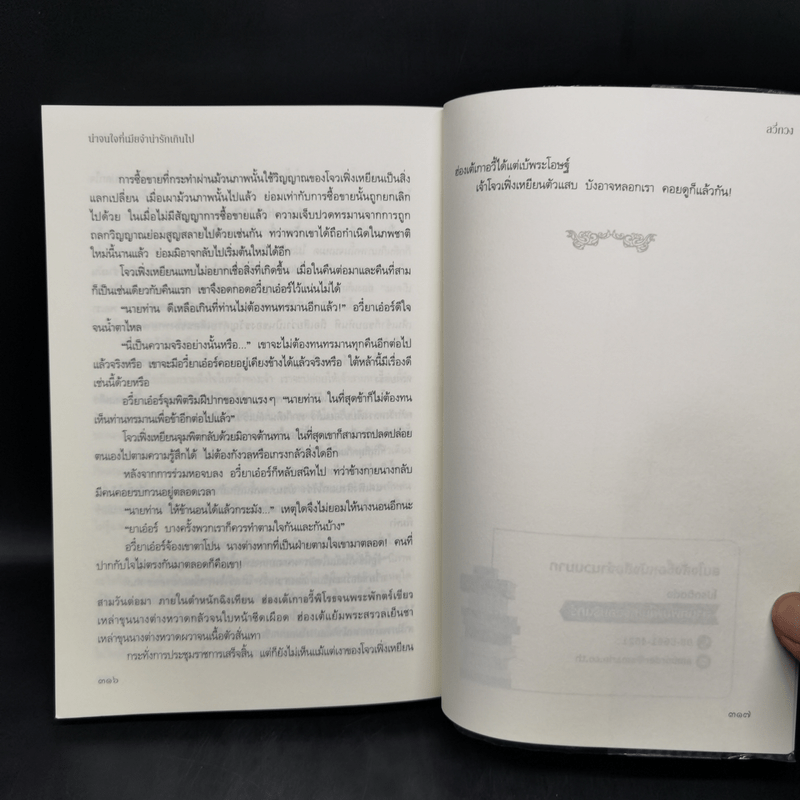 น่าจนใจที่เมียจ๋าน่ารักเกินไป
การซื้อขายที่กระทำผ่านม้วนภาพนั้นใช้วิญญาณของโจวเพิ่งเหยียนเป็นสิ่ง
แลกเปลี่ยน เมื่อเผาม้วนภาพนั้นไปแล้ว ย่อมเท่ากับการซื้อขายนั้นถูกยกเลิก
ไปด้วย ในเมื่อไม่มีสัญญาการซื้อขายแล้ว ความเจ็บปวดทรมานจากการถูก
ถลกวิญญาณย่อมสูญสลายไปด้วยเช่นกัน ทว่าพวกเขาได้ถือกำเนิดในภพชาติ
ใหม่นี้นานแล้ว ย่อมมิอาจกลับไปเริ่มต้นใหม่ได้อีก
โจวเพิ่งเหยียนแทบไม่อยากเชื่อสิ่งที่เกิดขึ้น เมื่อในคืนต่อมาและคืนที่สาม
ก็เป็นเช่นเดียวกับคืนแรก เขาจึงอดกอดอวี่ยาเอ๋อร์ไว้แน่นไม่ได้
“นายท่าน ดีเหลือเกินที่ท่านไม่ต้องทนทรมานอีกแล้ว!” อวี่ยาเอ๋อร์ดีใจ
จนน้ำตาไหล
“นี่เป็นความจริงอย่างนั้นหรือ...” เขาจะไม่ต้องทนทรมานทุกคืนอีกต่อไป
แล้วจริงหรือ เขาจะมีอวี่ยาเอ๋อร์คอยอยู่เคียงข้างได้แล้วจริงหรือ ใต้หล้านี้มีเรื่องดี
เช่นนี้ด้วยหรือ
อวี่ยาเอ๋อร์จุมพิตริมฝีปากของเขาแรงๆ “นายท่าน ในที่สุดข้าก็ไม่ต้องทน
เห็นท่านทรมานเพื่อข้าอีกต่อไปแล้ว”
โจวเพิ่งเหยียนจุมพิตกลับด้วยมิอาจต้านทาน ในที่สุดเขาก็สามารถปลดปล่อย
ตนเองไปตามความรู้สึกได้ ไม่ต้องกังวลหรือเกรงกลัวสิ่งใดอีก
หลังจากการร่วมหอจบลง อวี่ยาเอ๋อร์ก็หลับสนิทไป ทว่าข้างกายนางกลับ
มีคนคอยรบกวนอยู่ตลอดเวลา
“นายท่าน ให้ข้านอนได้แล้วกระมัง...” เหตุใดจึงไม่ยอมให้นางนอนอีกนะ
“ยาเอ๋อร์ บางครั้งพวกเราก็ควรทำตามใจกันและกันบ้าง”
อวี่ยาเอ๋อร์จ้องเขาตาโปน นางต่างหากที่เป็นฝ่ายตามใจเขามาตลอด! คนที่
ปากกับใจไม่ตรงกันมาตลอดก็คือเขา!
สามวันต่อมา ภายในตำหนักฉิงเทียน ฮ่องเต้เกาอวี้พิโรธจนพระพักตร์เขียว
เหล่าขุนนางต่างหวาดกลัวจนใบหน้าซีดเผือด ฮ่องเต้แย้มพระสรวลเย็นชา
เหล่าขุนนางต่างหวาดผวาจนเนื้อตัวสั่นเทา
กระทั่งการประชุมราชการเสร็จสิ้น แต่ก็ยังไม่เห็นแม้แต่เงาของโจวเพิ่งเหยียน
๓๑๖
ลวี่กวง
ฮ่องเต้เกาอวี้ได้แต่เบ้พระโอษฐ์
เจ้าโจวเพิ่งเหยียนตัวแสบ บังอาจหลอกเรา คอยดูก็แล้วกัน!
๓๑๗